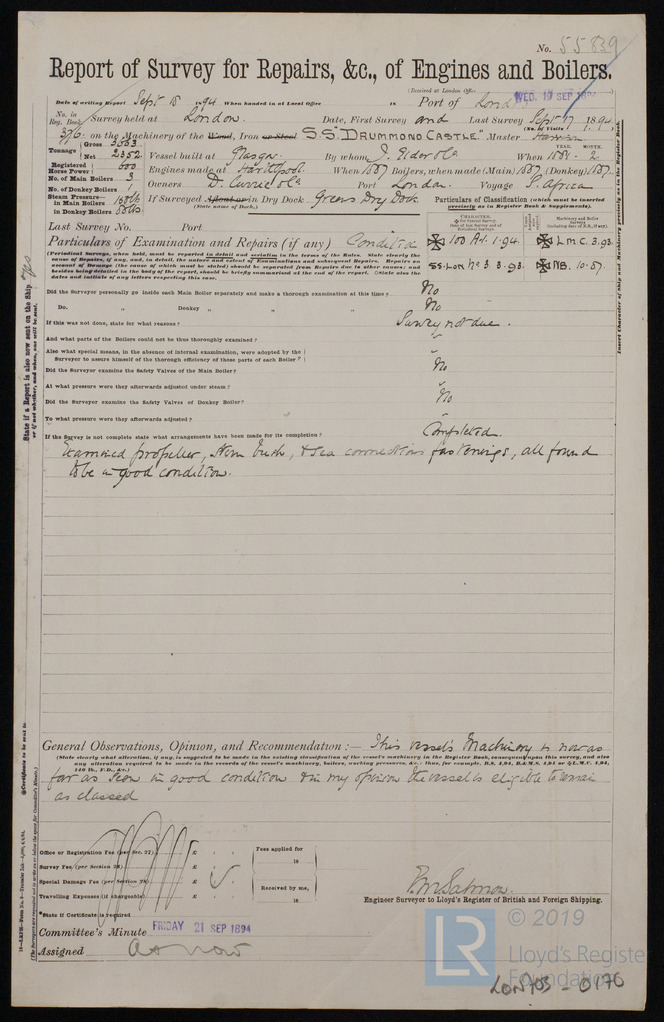 No. 55839
Report of Survey for Repairs, &c., of Engines and Boilers.
(Received at London Office WED. 19 SEP 1894
Date of writing Report Sept 18 1894 When handed in at Local Office 18 Port of London
No. in Reg. Book. Survey held at London. Date, First Survey and Last Survey Sept 17 1894
(No. of Visits 1.)
376. on the Machinery of the Wood, Iron or Steel S.S. "DRUMMOND CASTLE." Master
Tonnage Gross 3663 Net 2352 Vessel built at Glasgow By whom J. Elder & Co When YEAR. 1881. MONTH. 2
Registered Horse Power 600 Engines made at Hartlepool. When 1887 Boilers, when made (Main) 1887 (Donkey) 1887.
No. of Main Boilers 3
No. of Donkey Boilers 1 Owners D. Currie & Co Port London. Voyage S. Africa
Steam Pressure in Main Boilers in Donkey Boilers If Surveyed Afloat or in Dry Dock Greens Dry Dock
(State name of Dock.)
Particulars of Classification (which must be inserted precisely as in Register Book & Supplements).
Last Survey No. Port
Particulars of Examination and Repairs (if any) Condition
100 A1. 1.94. L.M.C. 3.93.
SS. Lon No 3. 3.93. NB. 10.87
Did the Surveyor personally go inside each Main Boiler separately and make a thorough examination at this time? No
Do. " Donkey " " " No
If this was not done, state for what reasons? Survey not due.
And what parts of the Boilers could not be thus thoroughly examined? "
Also what special means, in the absence of internal examination, were adopted by the Surveyor to assure himself of the thorough efficiency of those parts of each Boiler? "
Did the Surveyor examine the Safety Valves of the Main Boiler? No
At what pressure were they afterwards adjusted under steam? "
Did the Surveyor examine the Safety Valves of Donkey Boiler? No
To what pressure were they afterwards adjusted? "
If the Survey is not complete state what arrangements have been made for its completion? Completed.
Examined propeller, stern bush, & sea connections fastenings, all found
to be in good condition.
General Observations, Opinion, and Recommendation:— This vessel's Machinery is now as
(State clearly what alteration, if any, is suggested to be made in the existing classification of the vessel's machinery in the Register Book, consequent upon this survey, and also
any alteration required to be made in the records of the vessel's machinery, boilers, working pressures, &c.: thus, for example, B.S. 1,94, B.&M.S. 1,94 or L.M.C. 1,94,
140 lb., F.D., &c.)
far as seen in good condition & in my opinion the vessel is eligible to remain
as classed
Office or Registration Fee (per Sec. 27) £ Fees applied for
Survey Fee (per Section 28) £ 18
Special Damage Fee (per Section 28) £ Received by me,
Travelling Expenses (if chargeable) £ 18
*State if Certificate is required
Engineer Surveyor to Lloyd's Register of British and Foreign Shipping.
Committee's Minute FRIDAY 21 SEP 1894
Assigned as now
State if a Report is also now sent on the Ship
Insert Character of Ship and Machinery precisely as in the Register Book.
LR
© 2019
Lloyd's Register
Foundation
LON703-0176